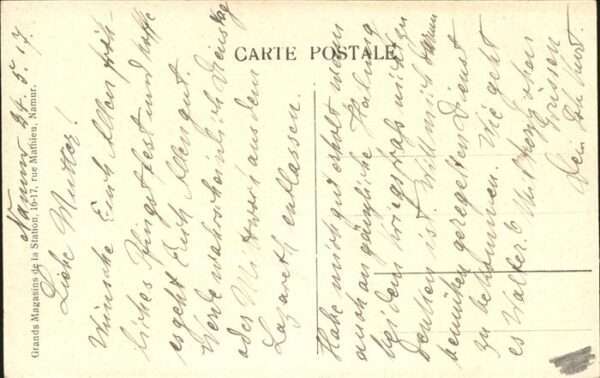 CARTE POSTALE
Grands Magasins de la Station, 16-17, rue Mathieu, Namur.
Namur 24.5.17.
Liebe Mutter!
Wünsche Euch Allen fröh-
liches Pfingstfest und hoffe
es geht Euch Allen gut.
Werde wahrscheinlich Dienstag
oder Mittwoch aus dem
Lazareth entlassen.
Habe mich gut erholt wenn
auch an gänzliche Heilung
bei dem Kriegsfraß nicht zu
denken ist. Will mich
bemühen geregelten Dienst
zu bekommen. Wie geht
es Walter? Mit herzlichen
Grüssen
Dein Sohn Kurt.